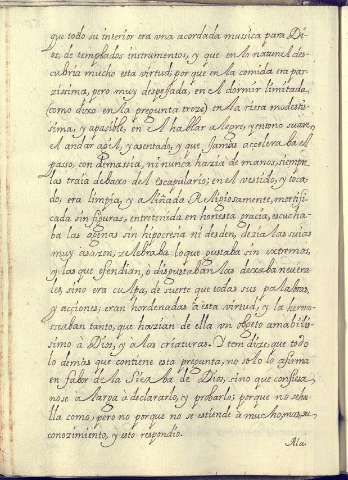 que todo su interior era una acordada musica para Di-
os, de templados instrumentos, y que en lo natural des-
cubria mucho esta virtud, porque en la comida era par-
zissima, pero muy despejada, en el dormir limitada,
(como dixo en la pregunta treze) en la risa modestis-
sima, y apasible, en el hablar alegre, y en tono suave,
el andar agil, y asentado, y que jamas azeleraba el
passo, con demassia, ni nunca hazia de manos, siempre
las traia debaxo del escapulario; en el vestido, y toca-
do, era limpia, y aliñada religiosamente, mortifi-
cada sin figuras, entretenida en honesta gracia, escucha-
ba las agenas sin hipocresia ni desden, dezia las suias
muy a sazon, zelebraba lo que gustaba sin extremos,
y las que ofendian, o disgustaban las dexaba neutra-
les, sino era culpa, de suerte que todas sus palabras,
y acciones, eran hordenadas a esta virtud, y la hermo-
seaban tanto, que hazian de ella vn objeto amabilis-
simo à Dios, y a las criaturas. Y tem dize, que todo
lo demàs que contiene esta pregunta, no solo lo afirma
en fabor de la Sierba de Dios, sino que confiessa,
no se alarga a declararlo, y probarlo; porque no se ha-
lla como, pero no porque no se estiende à mucho mas, su
conozimiento, y esto respondio.
Ala